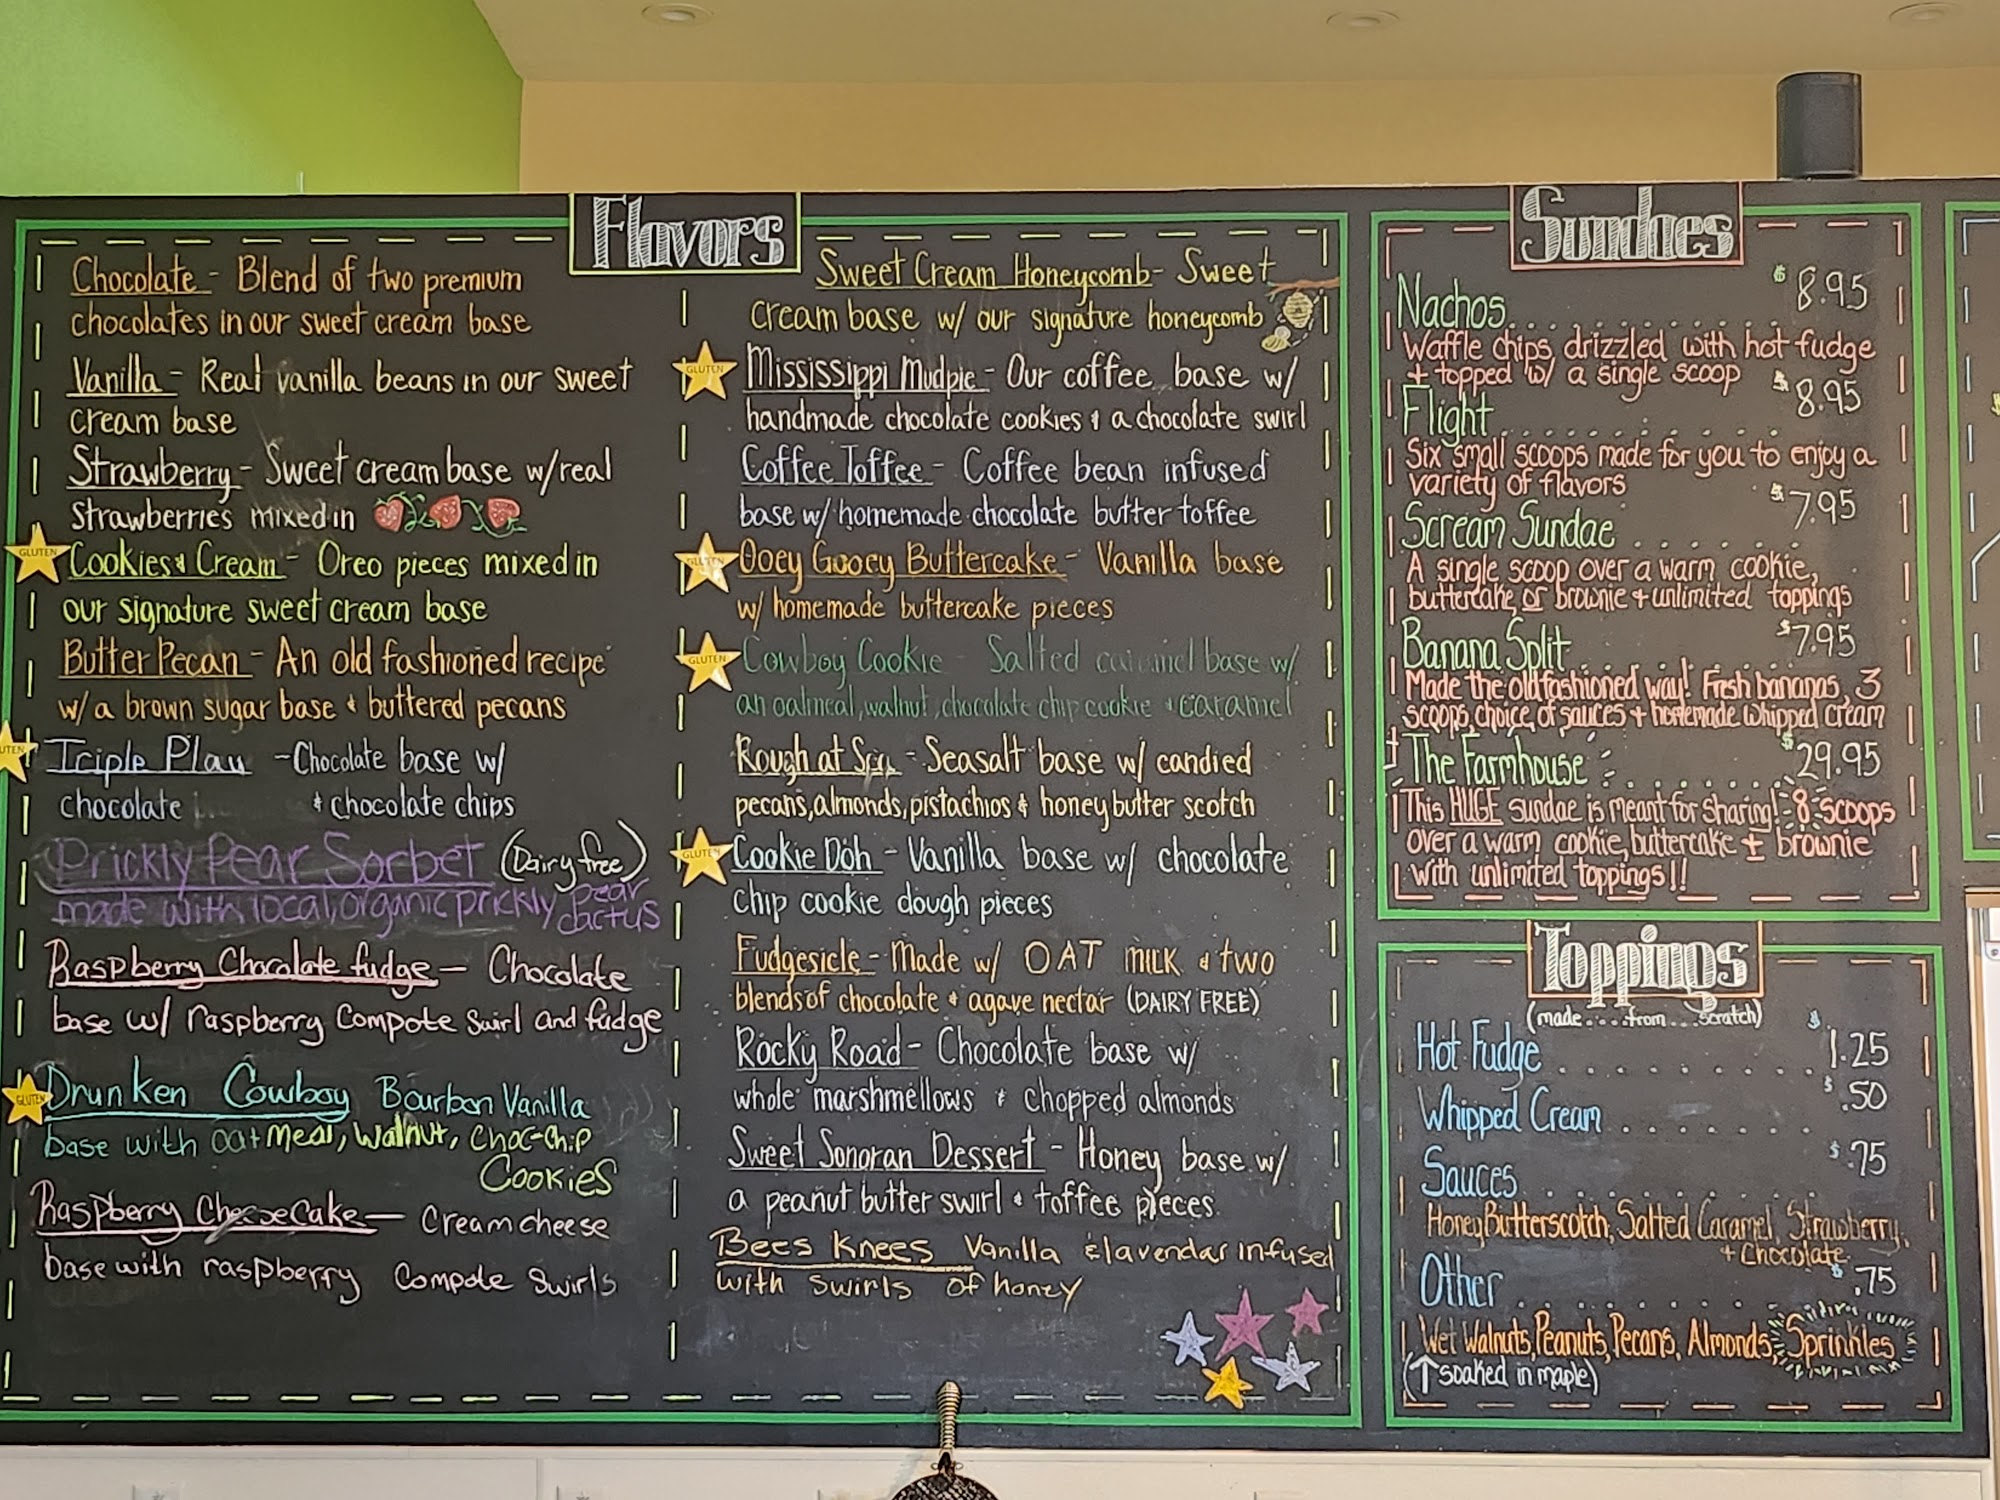 Flavors
Chocolate - Blend of two premium
chocolates in our sweet cream base
Vanilla - Real vanilla beans in our sweet
cream base
Strawberry - Sweet cream base w/real
strawberries mixed in
GLUTEN
Cookies & Cream - Oreo pieces mixed in
our signature sweet cream base
Butter Pecan - An old fashioned recipe
w/ a brown sugar base & buttered pecans
Triple Play - Chocolate base w/
chocolate & chocolate chips
Prickly Pear Sorbet (Dairy free)
made with local, organic prickly pear
cactus
Raspberry Chocolate fudge - Chocolate
base w/ raspberry compote swirl and fudge
GLUTEN
Drunken Cowboy Bourbon Vanilla
base with oatmeal, walnut, choc-chip
Cookies
Raspberry CheeseCake - Cream cheese
base with raspberry Compote Swirls
Sweet Cream Honeycomb - Sweet
cream base w/ our signature honeycomb
GLUTEN
Mississippi Mudpie - Our coffee base w/
handmade chocolate cookies & a chocolate swirl
Coffee Toffee - Coffee bean infused
base w/ homemade chocolate butter toffee
GLUTEN
Ooey Gooey Buttercake - Vanilla base
w/ homemade buttercake pieces
GLUTEN
Cowboy Cookie - Salted caramel base w/
an oatmeal, walnut, chocolate chip cookie & caramel
Rough at Sea - Seasalt base w/ candied
pecans, almonds, pistachios & honey butter scotch
GLUTEN
Cookie Doh - Vanilla base w/ chocolate
chip cookie dough pieces
Fudgesicle - Made w/ OAT MILK & two
blends of chocolate & agave nectar (DAIRY FREE)
Rocky Road - Chocolate base w/
whole marshmellows & chopped almonds
Sweet Sonoran Dessert - Honey base w/
a peanut butter swirl & toffee pieces
Bees Knees Vanilla & lavendar infused
with swirls of honey
Sundaes
Nachos . . . . . . . . $8.95
Waffle chips drizzled with hot fudge
+ topped w/ a single scoop
Flight . . . . . . . . $8.95
Six small scoops made for you to enjoy a
variety of flavors
Scream Sundae . . . . . $7.95
A single scoop over a warm cookie,
buttercake or brownie + unlimited toppings
Banana Split . . . . . $7.95
Made the old fashioned way! Fresh bananas, 3
scoops, choice of sauces + homemade whipped cream
The Farmhouse . . . . . $29.95
This HUGE sundae is meant for sharing! 8 scoops
over a warm cookie, buttercake ± brownie
with unlimited toppings!!
Toppings
(made....from...scratch)
Hot Fudge . . . . . . . . $1.25
Whipped Cream . . . . . . $.50
Sauces . . . . . . . . $.75
Honey Butterscotch, Salted Caramel, Strawberry,
+ Chocolate
Other . . . . . . . . $.75
Wet Walnuts, Peanuts, Pecans, Almonds, Sprinkles
(↑ soaked in maple)